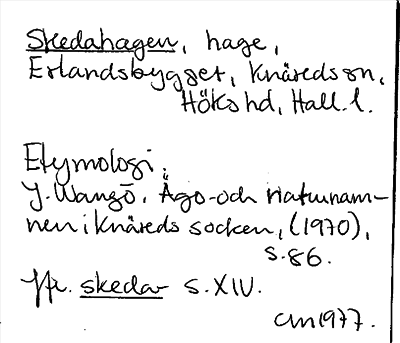 Skedahagen, hage,
Erlandsbygget, Knäreds sn,
Höks hd, Hall. l.
Etymologi:
J. Wangö, Ägo- och naturnam-
nen i Knäreds socken, (1970),
s. 86.
Jfr. skedar s. XIV.
CM 1977.